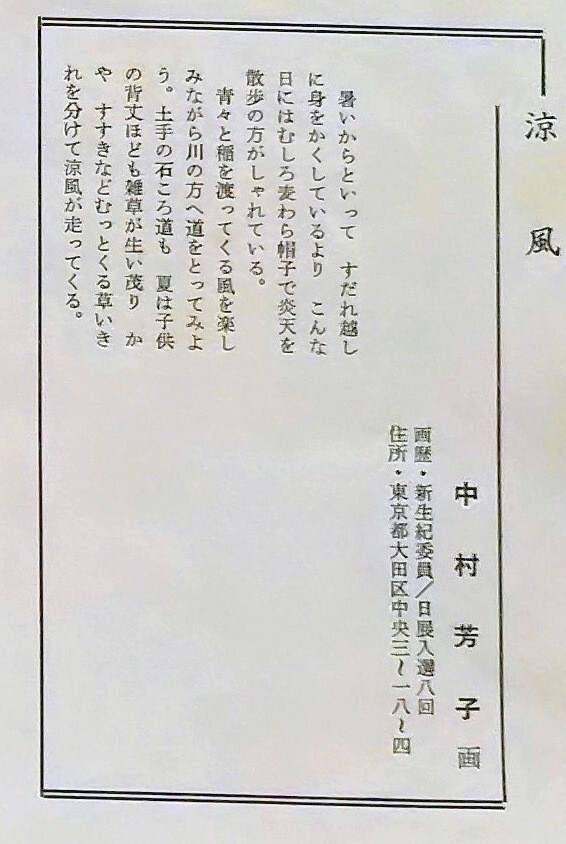 涼風
暑いからといって　すだれ越し
に身をかくしているより　こんな
日にはむしろ麦わら帽子で炎天を
散歩の方がしゃれている。
青々と稲を渡ってくる風を楽し
みながら川の方へ道をとってみよ
う。土手の石ころ道も　夏は子供
の背丈ほども雑草が生い茂り　か
や　すすきなどむっとくる草いき
れを分けて涼風が走ってくる。
中村芳子画
画歴・新生紀委員／日展入選八回
住所・東京都大田区中央三〜一八〜四